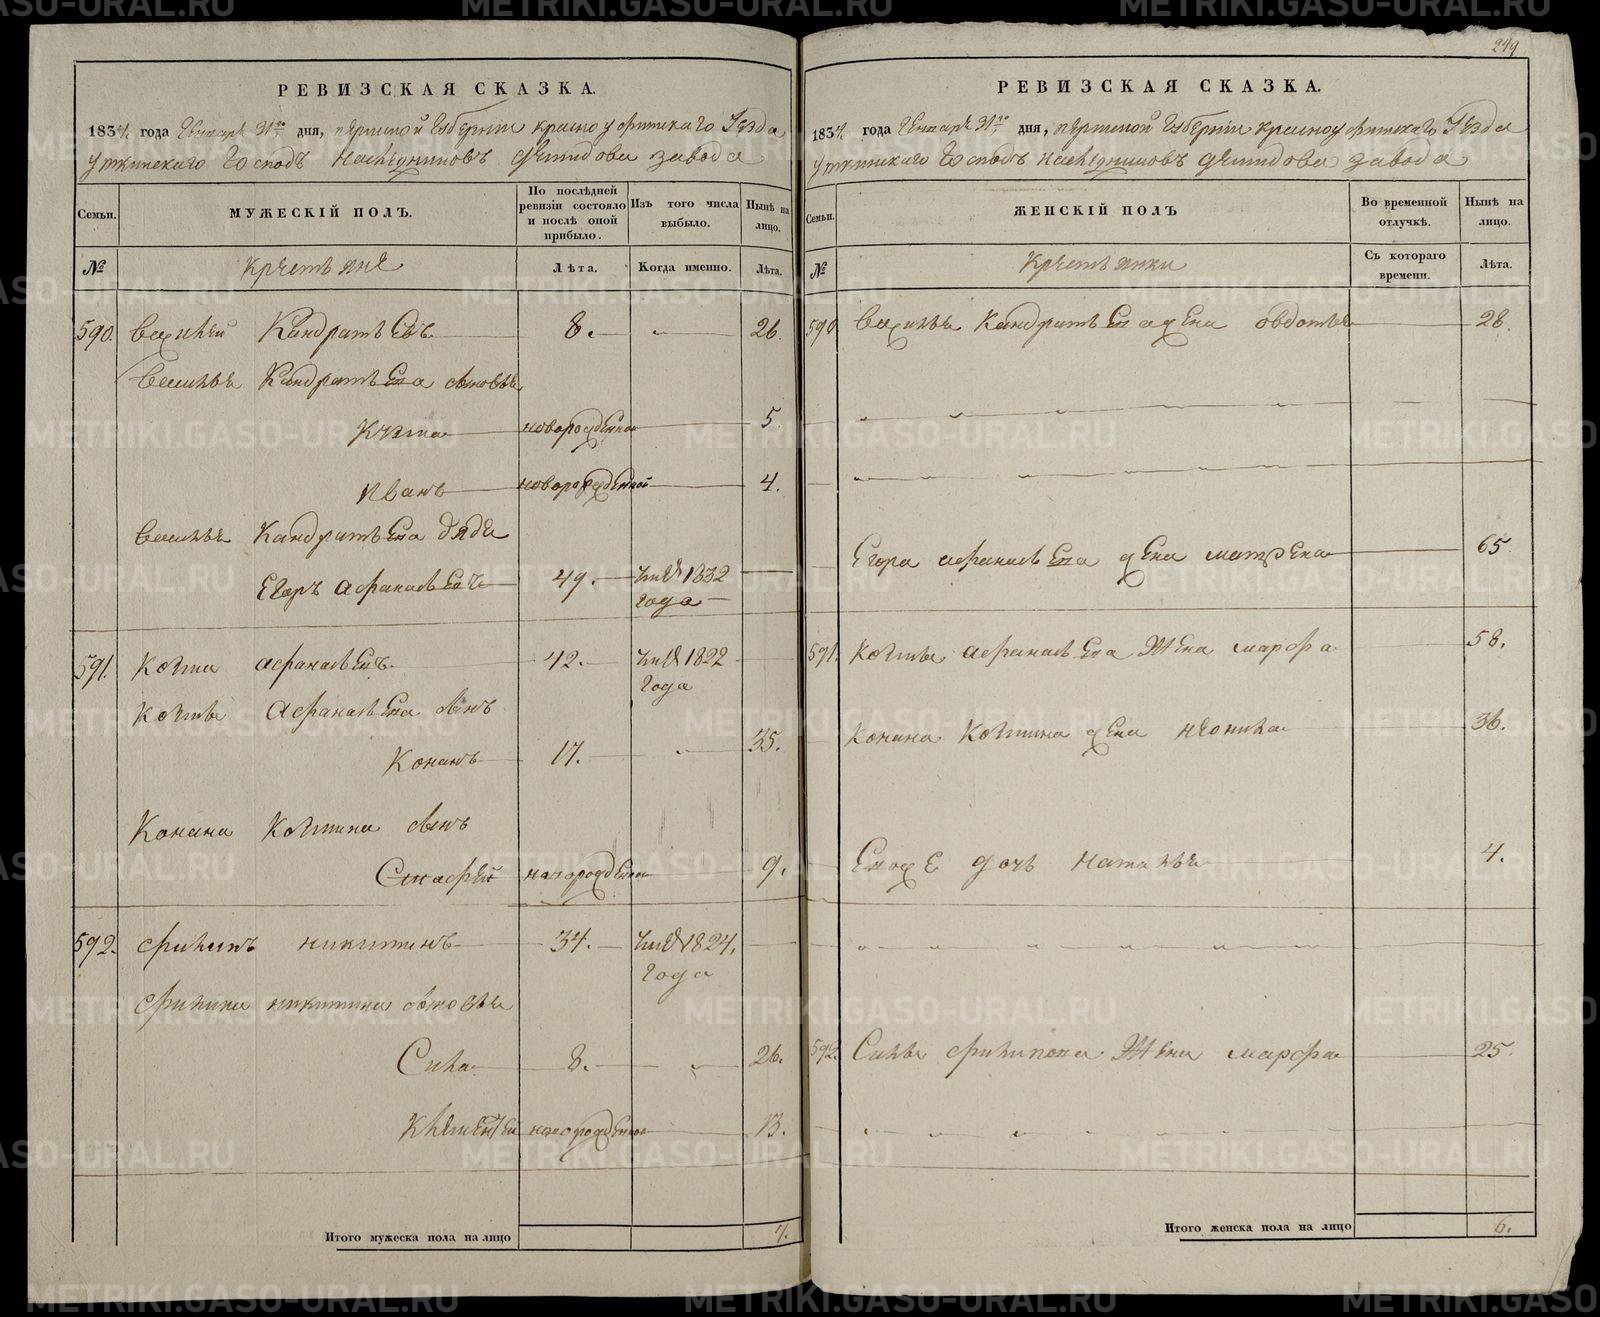 249
РЕВИЗСКАЯ СКАЗКА.
1834 года Генваря 31го дня, пермской Губернiи красноуфимскаго Уезда
уткинскаго Господъ наследниковъ демидова завода
Семьи. МУЖЕСКІЙ ПОЛЪ. По послѣдней ревизіи состояло и послѣ оной прибыло. Изъ того числа выбыло. Нынѣ на лицо.
№ Крестьяне Лѣта. Когда именно. Лѣта.
590. Василей Кандратьевъ 8. 26.
Василья Кандратьева сыновья
Кузма новорожденной 5.
Иванъ новорожденной 4.
Василья Кандратьева дядя
Егоръ афанасьевъ 49. 1832
года
591. Козма афанасьевъ 42. 1822
года
Козмы Афанасьева сынъ
Конанъ 17. 35.
Конана Козмина сынъ
Стафей новорожденной 9.
592. филипъ никитинъ 34. 1824.
года
филипа никитина сыновья
Сила 8. 26.
Клементей новорожденной 13.
Итого мужеска пола на лицо 7.
РЕВИЗСКАЯ СКАЗКА.
1834 года Генваря 31го дня, пермской Губернiи красноуфимскаго Уезда
уткинскаго Господъ наследниковъ демидова завода
Семьи. ЖЕНСКІЙ ПОЛЪ Во временной отлучкѣ. Нынѣ на лицо.
№ Крестьянки Съ котораго времени. Лѣта.
590 Василья Кандратьева жена овдотья 28.
Егора афанасьева жена матрена 65.
591. Козмы афанасьева жена марфа 58.
Конана Козмина жена неонила 36.
Евоже дочь наталья 4.
592. Силы филипова жена марфа 25.
Итого женска пола на лицо 6.
METRIKI.GASO-URAL.RU